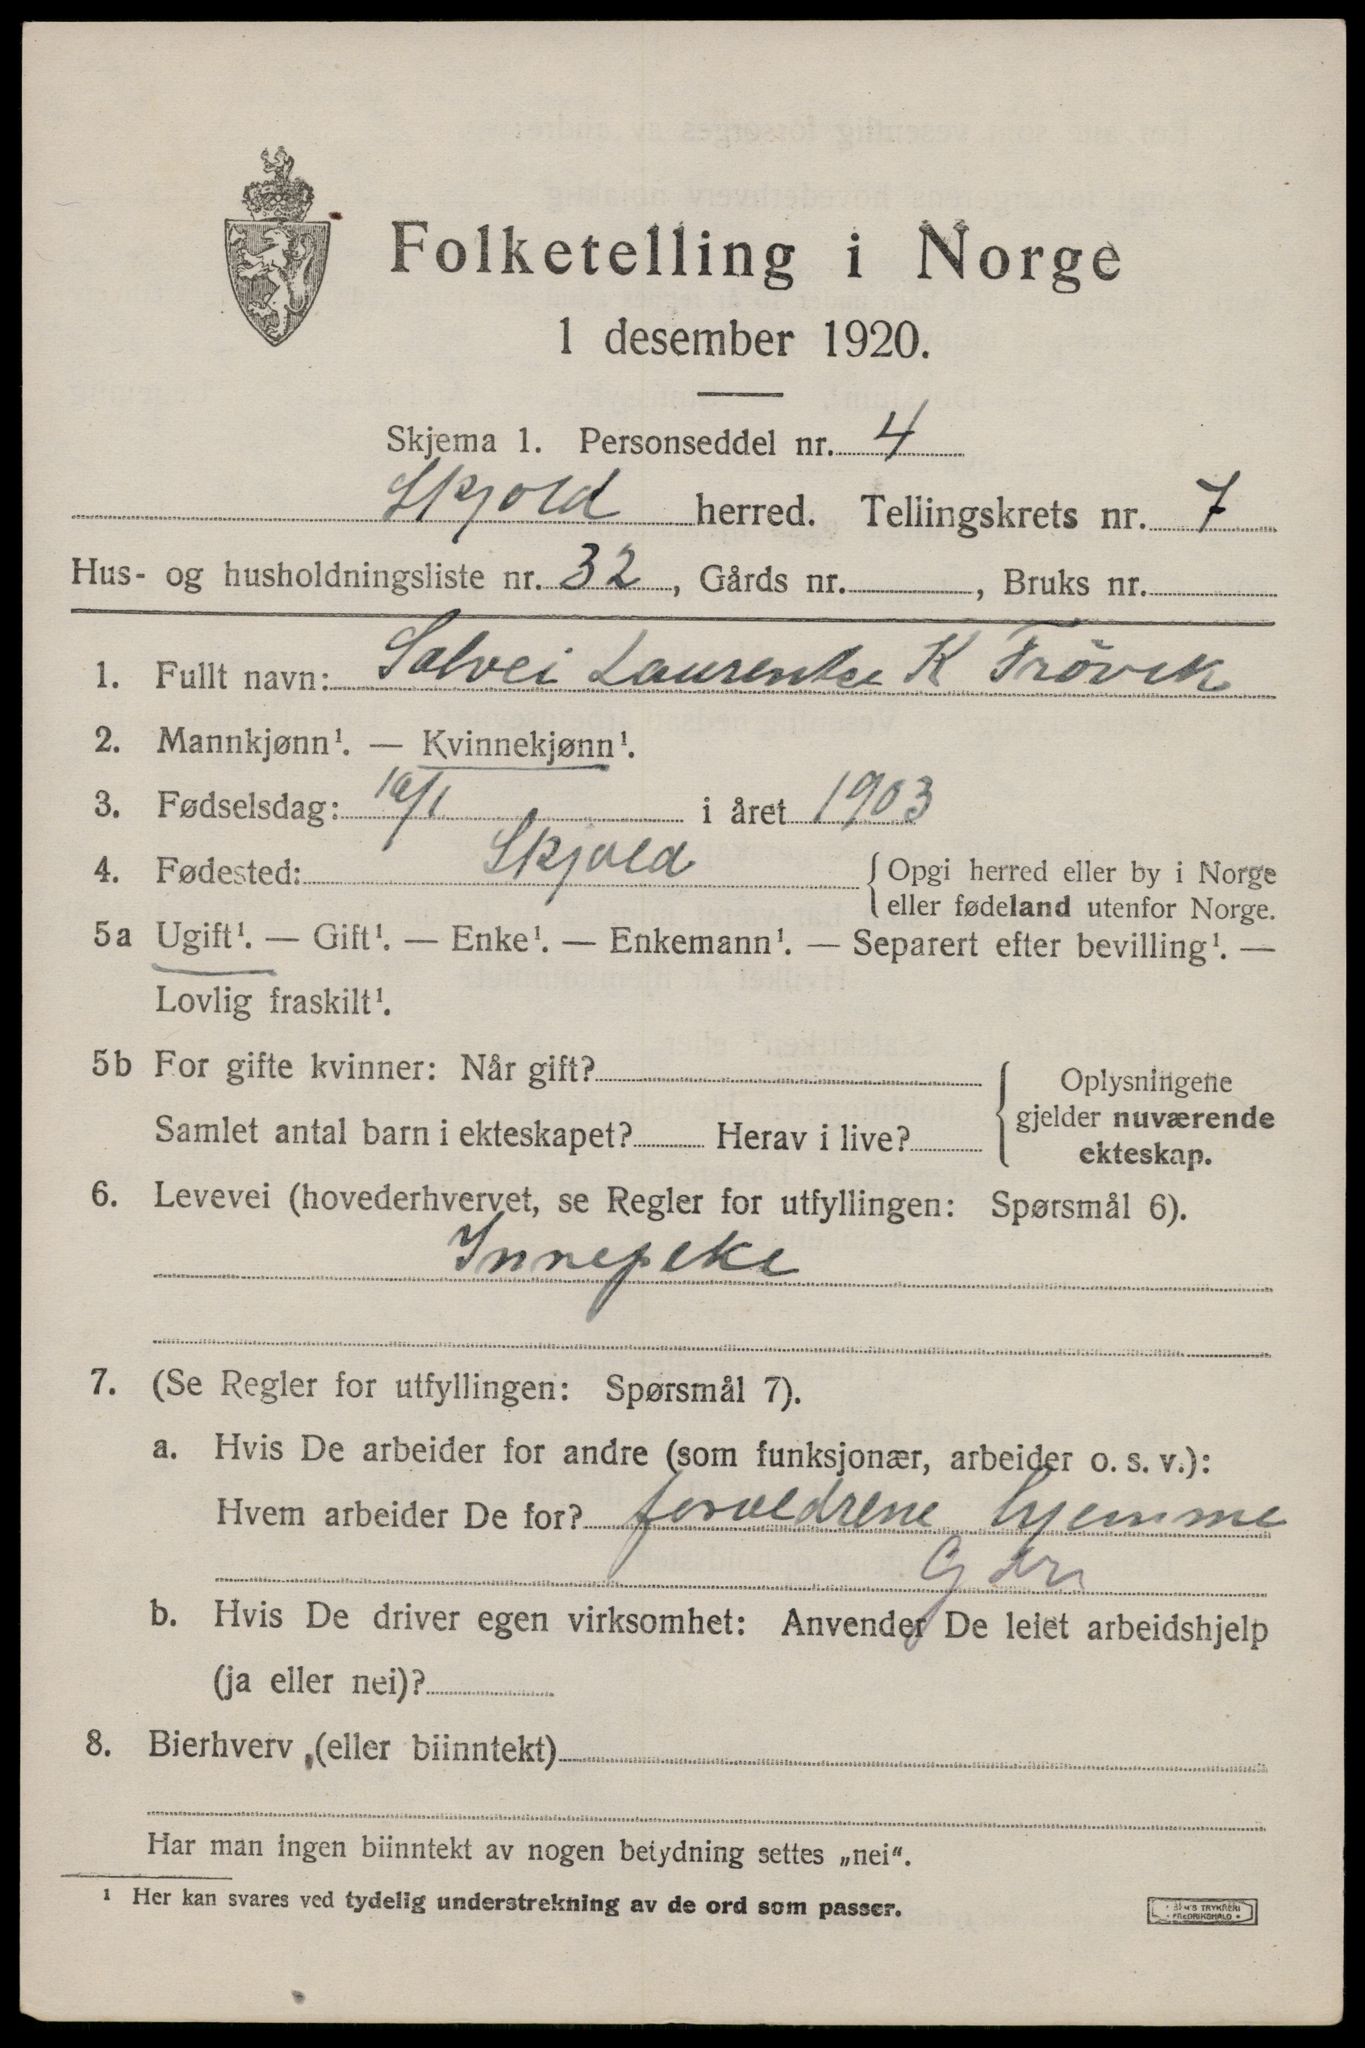 Folketelling i Norge
1 desember 1920.
Skjema 1. Personseddel nr. 4
Skjold herred. Tellingskrets nr. 7
Hus- og husholdningsliste nr. 32, Gårds nr. , Bruks nr.
1. Fullt navn: Solvei Laurentse K Frövik
2. Mannkjønn¹. — Kvinnekjønn¹.
3. Fødselsdag: 10/1 i året 1903
4. Fødested: Skjold { Opgi herred eller by i Norge
eller fødeland utenfor Norge.
5a Ugift¹. — Gift¹. — Enke¹. — Enkemann¹. — Separert efter bevilling¹. —
Lovlig fraskilt¹.
5b For gifte kvinner: Når gift?
Samlet antal barn i ekteskapet? Herav i live?
{ Oplysningene
gjelder nuværende
ekteskap.
6. Levevei (hovederhvervet, se Regler for utfyllingen: Spørsmål 6).
Innepike
7. (Se Regler for utfyllingen: Spørsmål 7).
a. Hvis De arbeider for andre (som funksjonær, arbeider o. s. v.):
Hvem arbeider De for? foreldrene hjemme
b. Hvis De driver egen virksomhet: Anvender De leiet arbeidshjelp
(ja eller nei)?
8. Bierhverv (eller biinntekt)
Har man ingen biinntekt av nogen betydning settes „nei“.
¹ Her kan svares ved tydelig understrekning av de ord som passer.
TRYKKERI
FREDRIKSHALD